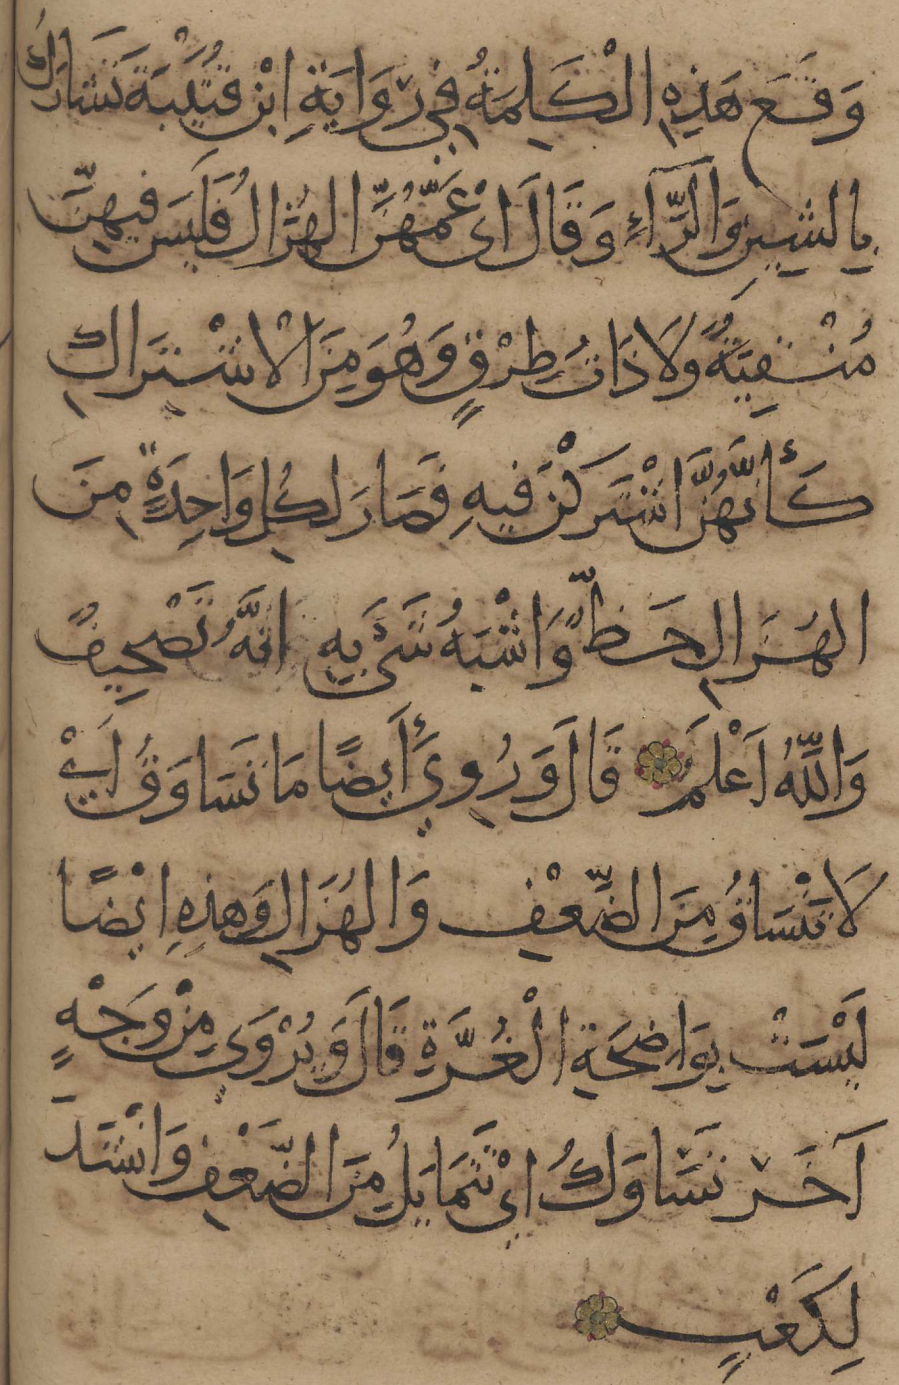 وَقَعَ هَذِهِ الْكَلِمَةُ فِي رِوَايَةِ ابْنِ قُتَيْبَةَ تَشَارَكُ
بِالشِّينِ وَالرَّاءِ وَقَالَ اَىْ عَمَّهُنَّ الهُزَالُ فَلَيسَ فيهِنَّ
مُنْقِيَةٌ وَلَا ذَاتُ طِرْقٍ وَهُوَ مِنَ الْاشْتِرَاكِ
كَأَنَّهُنَّ اشْتَرَكْنَ فيهِ فَصَارَ لِكُلِ وَاحِدَةٍ مِنَ
الهُزَالِ حَظٌّ وَاشْبَهُ شَىْءٍ بِهِ انَّهُ تَصْحِيفٌ
وَاللّٰهُ اَعْلَمُ قَالَ وَرُوِيَ أَيضًا مَا تَسَاوَقُ اَيْ
لَا تَنْسَاقُ مِنَ الضّعْفِ وَالهُزَالِ وَهذِهِ ايْضًا
لَيْسَتْ بِوَاضِحَةِ الْغُرَّةِ قَالَ وَيُرْوَى مِنْ وَجْهٍ
آخَرَ تَسَاوَكُ اىْ تَتَمَايَلُ مِنَ الضّعْفِ وَانْشَدَ
لِكَعْبٍ